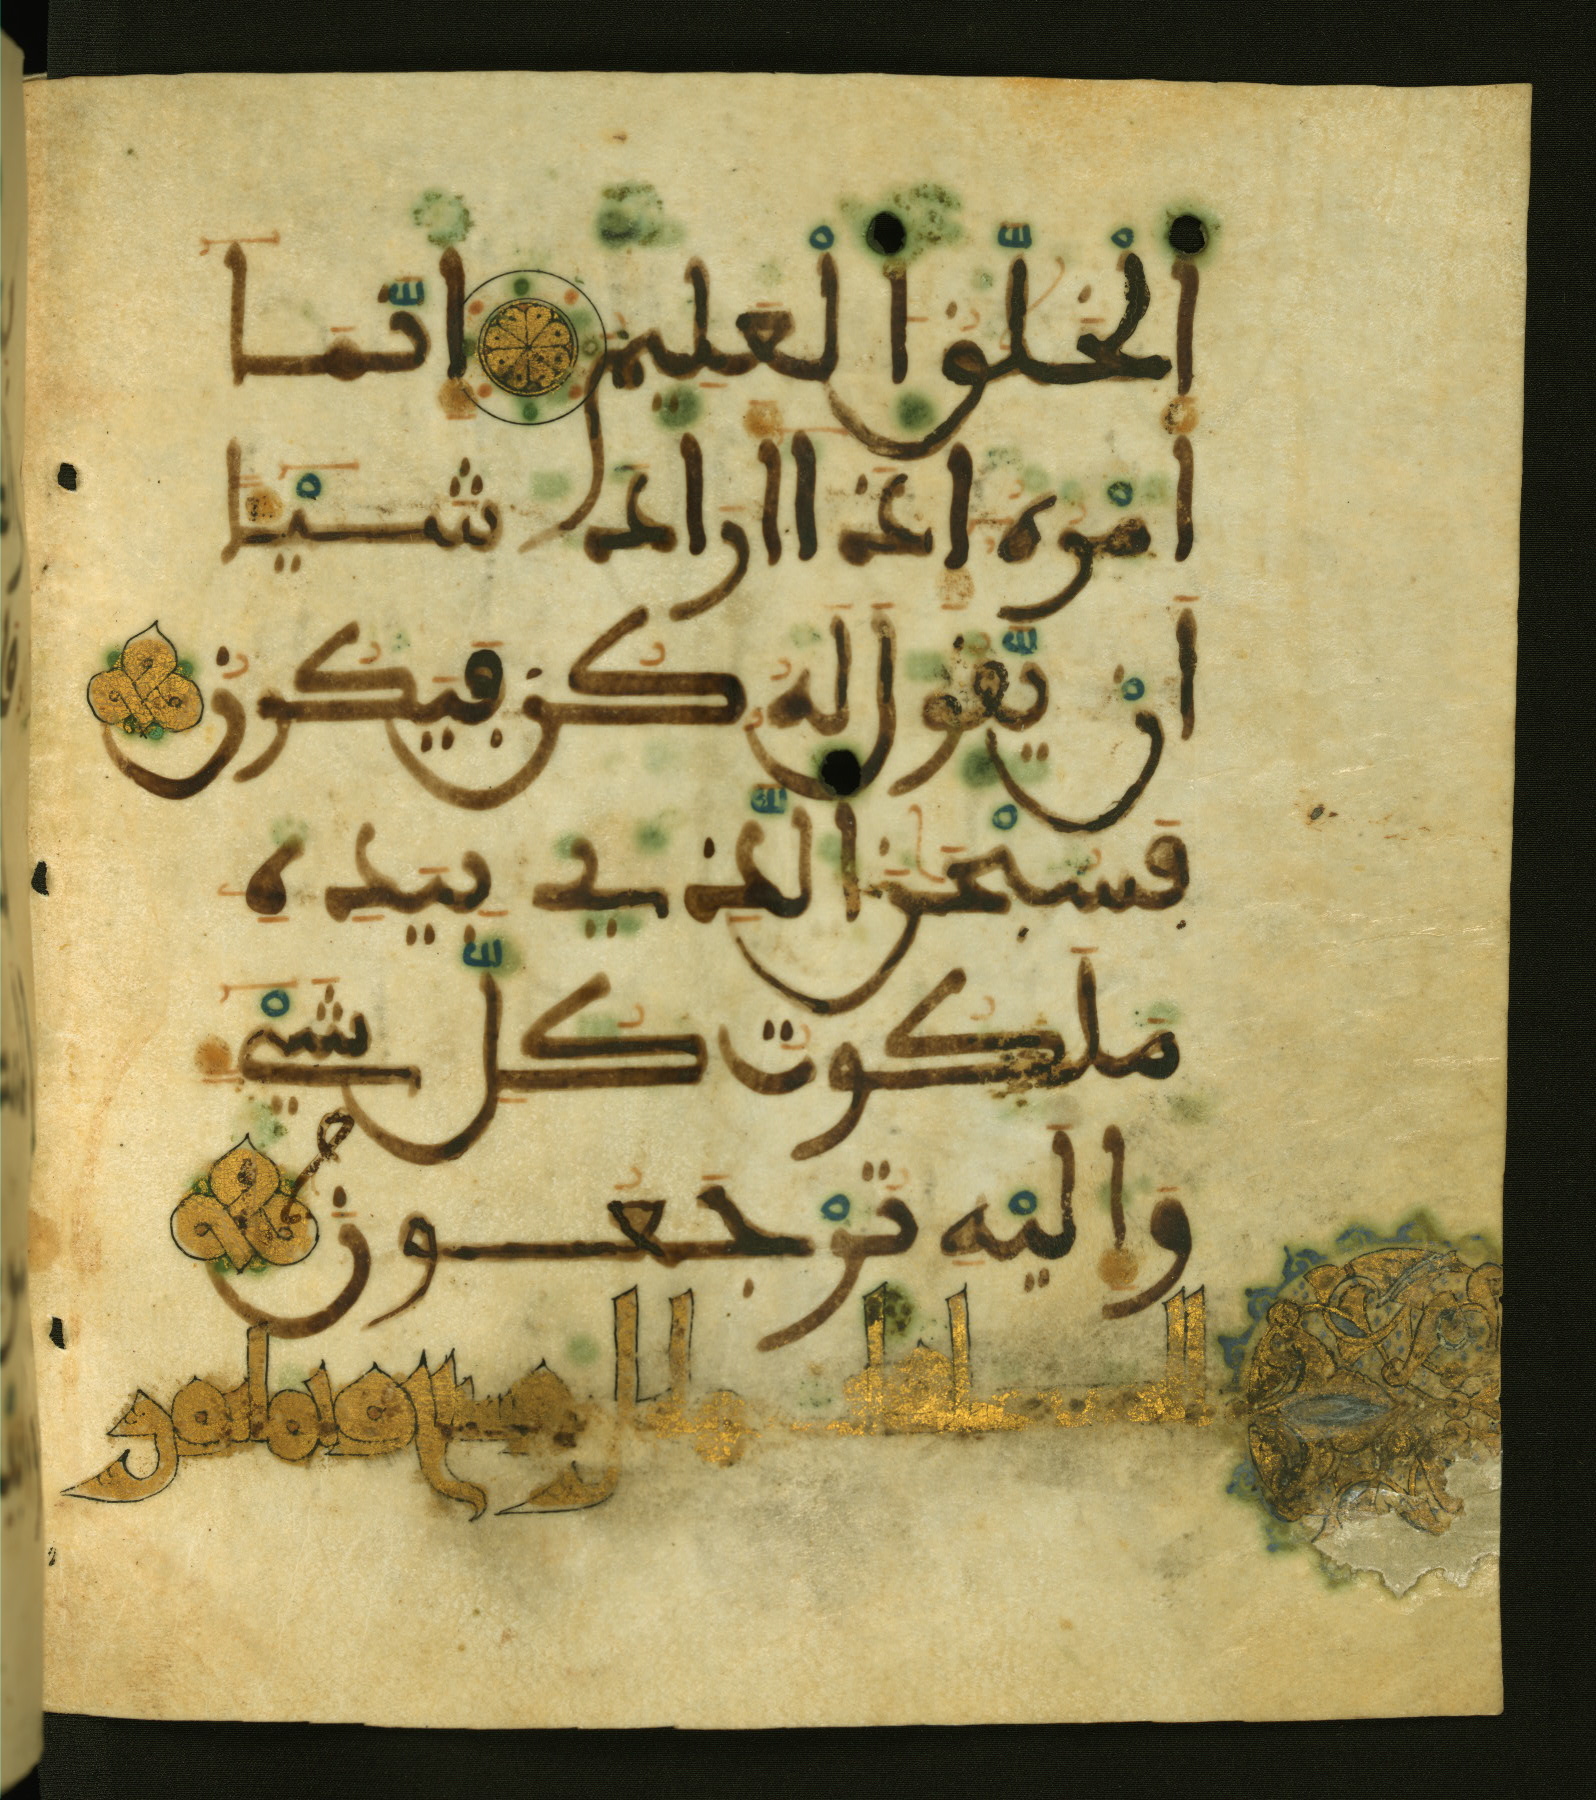 الخلق العليم انما
امره اذا اراد شيا
ان يقول له كن فيكون
فسبحن الذي بيده
ملكوت كل شي
واليه ترجعون